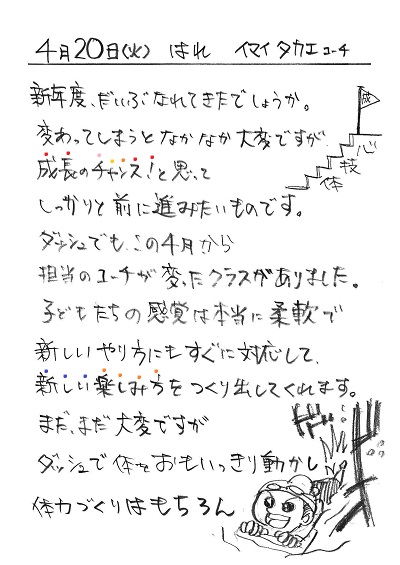 4月20日(火) はれ イマイタカエコーチ
新年度、だいぶなれてきたでしょうか。
変わってしまうとなかなか大変ですが
成長のチャンス!と思って
しっかりと前に進みたいものです。
ダッシュでも、この4月から
担当のコーチが変ったクラスがありました。
子どもたちの感覚は本当に柔軟で
新しいやり方にもすぐに対応して、
新しい楽しみ方をつくり出してくれます。
まだ、まだ大変ですが
ダッシュで体をおもいっきり動かし
体力づくりはもちろん
心
技
体